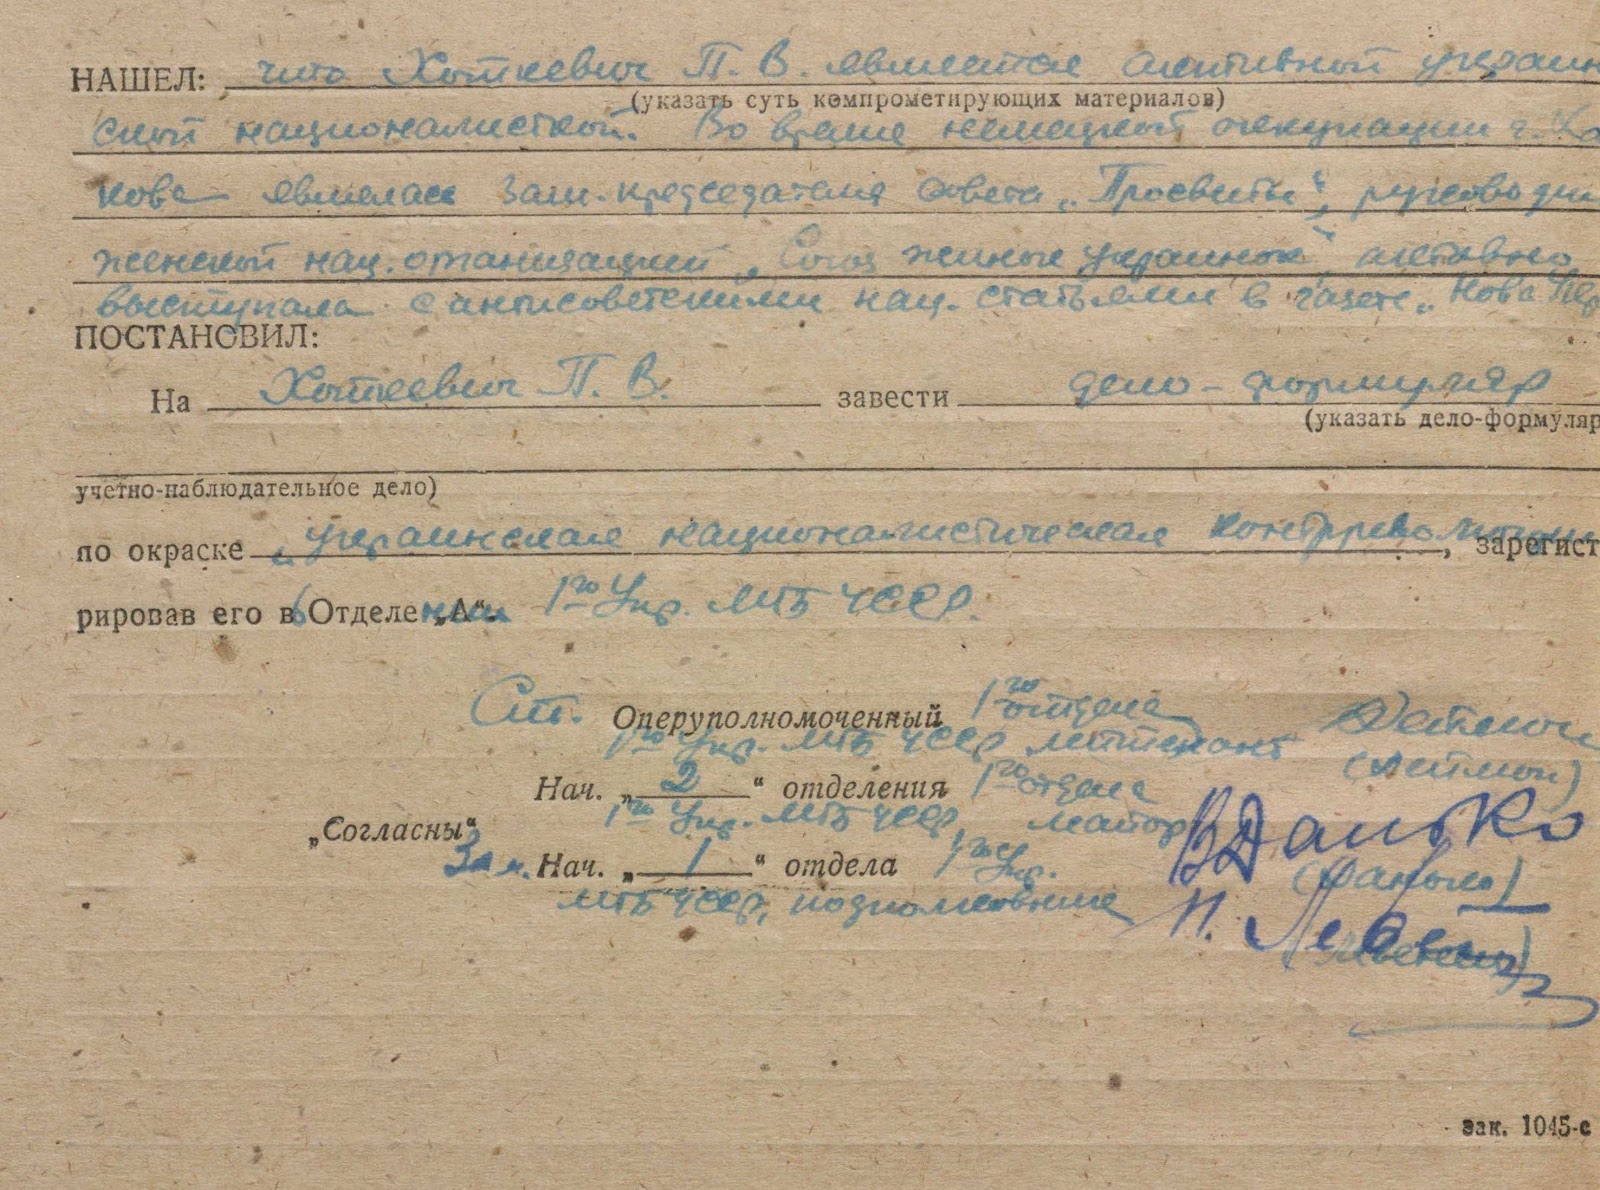 НАШЕЛ: что Хоткевич П. В. является активной украин
(указать суть компрометирующих материалов)
ской националисткой. Во время немецкой оккупации г. Ха
кова являлась зам. председателя совета „Просвиты“, руководил
женской нац. организацией „Союз жинок украинок“, активно
выступала с антисоветскими нац. статьями в газете „Нова
ПОСТАНОВИЛ:
На Хоткевич П. В. завести дело-формуляр
(указать дело-формуляр
учетно-наблюдательное дело)
по окраске „украинская националистическая контрреволюция, зарегист
рировав его в Отделе „А“. 1го Упр. МГБ УССР.
Ст. Оперуполномоченный 1го отдела
1го Упр. МГБ УССР лейтенант
Нач. „2“ отделения 1го отдела
1го Упр. МГБ УССР, майор ВДанько
„Согласны“
Зам. Нач. „1“ отдела 1го Упр.
(Данько)
МГБ УССР, подполковник
зак. 1045-с